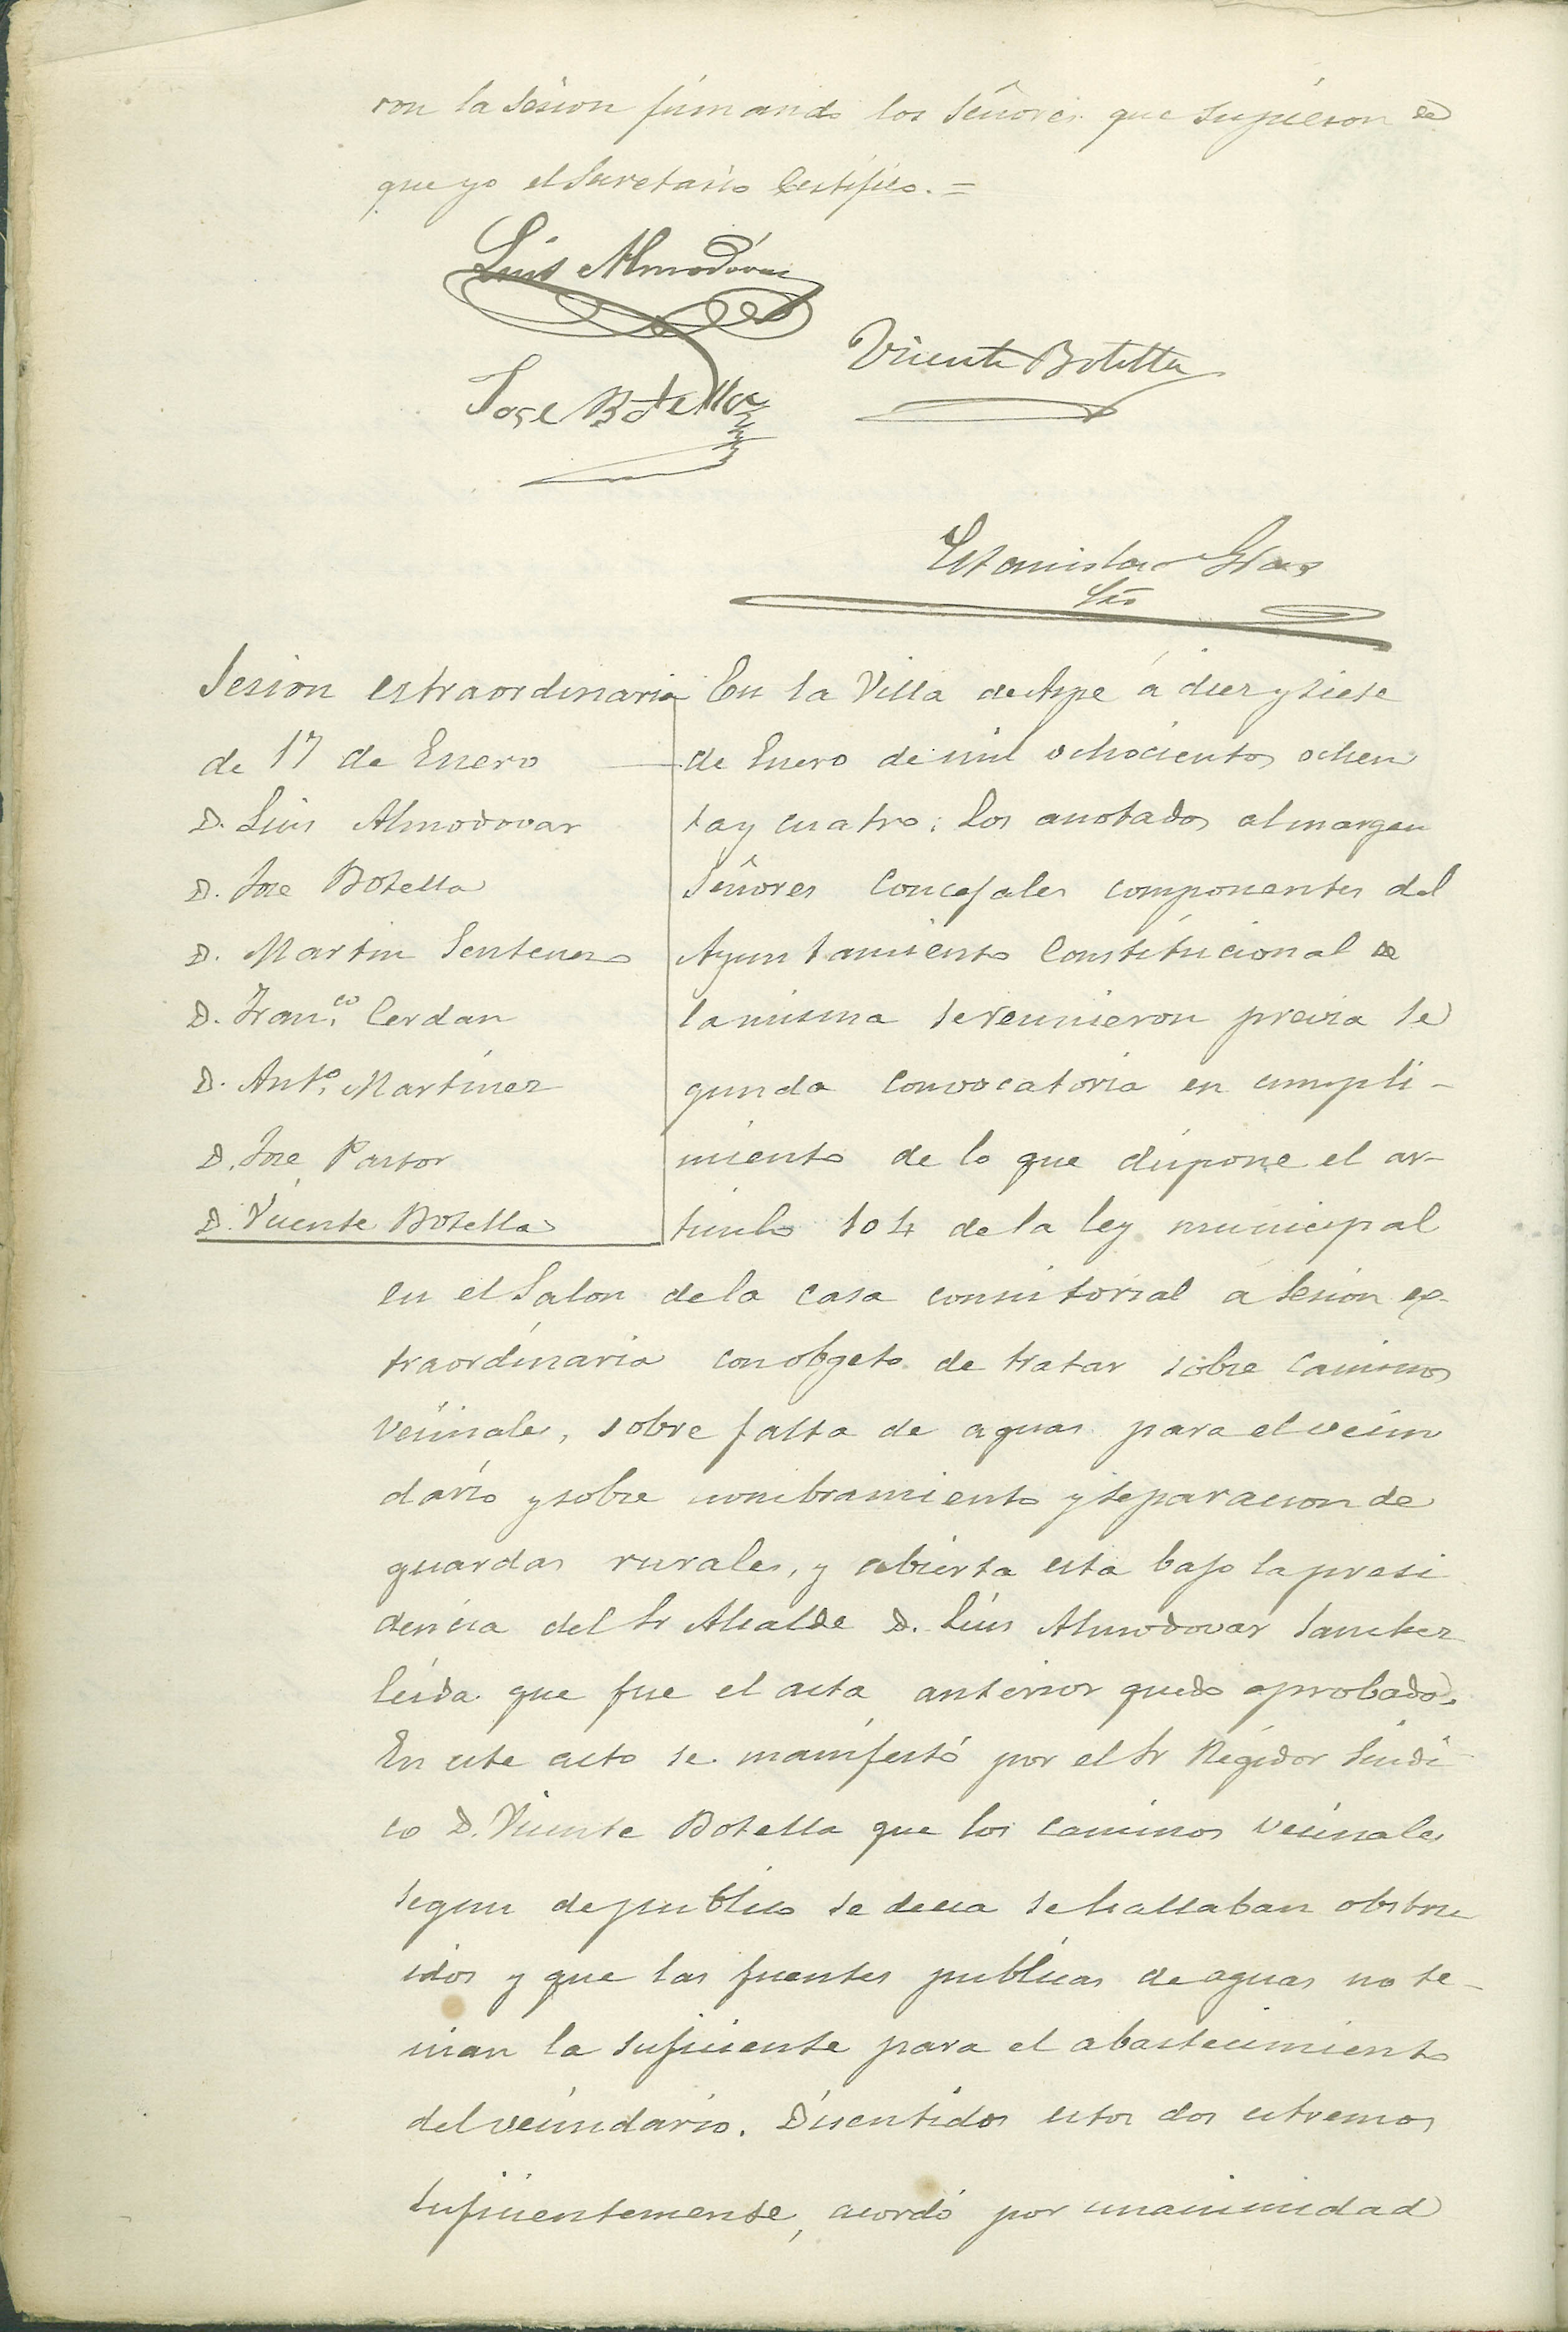 ron la Sesion firmando los Señores que supieron de
que yo el Secretario Certifico. =
Luis Almodóvar
Vicente Botella
Jose Botella
Estanislao
Srio
Sesion estraordinaria
de 17 de Enero
D. Luis Almodovar
D. Jose Botella
D. Martin Sentenero
D. Fran.co Cerdan
D. Anto. Martinez
D. Jose Pastor
D. Vicente Botella
En la Villa de Aspe á diez y siete
de Enero de mil ochocientos ochen
ta y cuatro; los anotados al margen
Señores Concejales componentes del
Ayuntamiento Constitucional de
la misma se reunieron previa se
gunda convocatoria en cumpli-
miento de lo que dispone el ar-
ticulo 104 de la ley municipal
en el Salon de la casa consistorial á Sesion ex-
traordinaria con obgeto de tratar sobre caminos
vecinales, sobre falta de aguas para el vecin
dario y sobre nombramiento y separacion de
guardas rurales, y abierta esta bajo la presi
dencia del Sr Alcalde D. Luis Almodovar Sanchez
leida que fue el acta anterior quedo aprobada.
En este acto se manifestó por el Sr Regidor Sindi
co D. Vicente Botella que los caminos vecinales
segun de publico se decia se hallaban obstru
idos y que las fuentes publicas de aguas no te-
nian la suficiente para el abastecimiento
del vecindario. Discutidos estos dos estremos
suficientemente, acordó por unanimidad